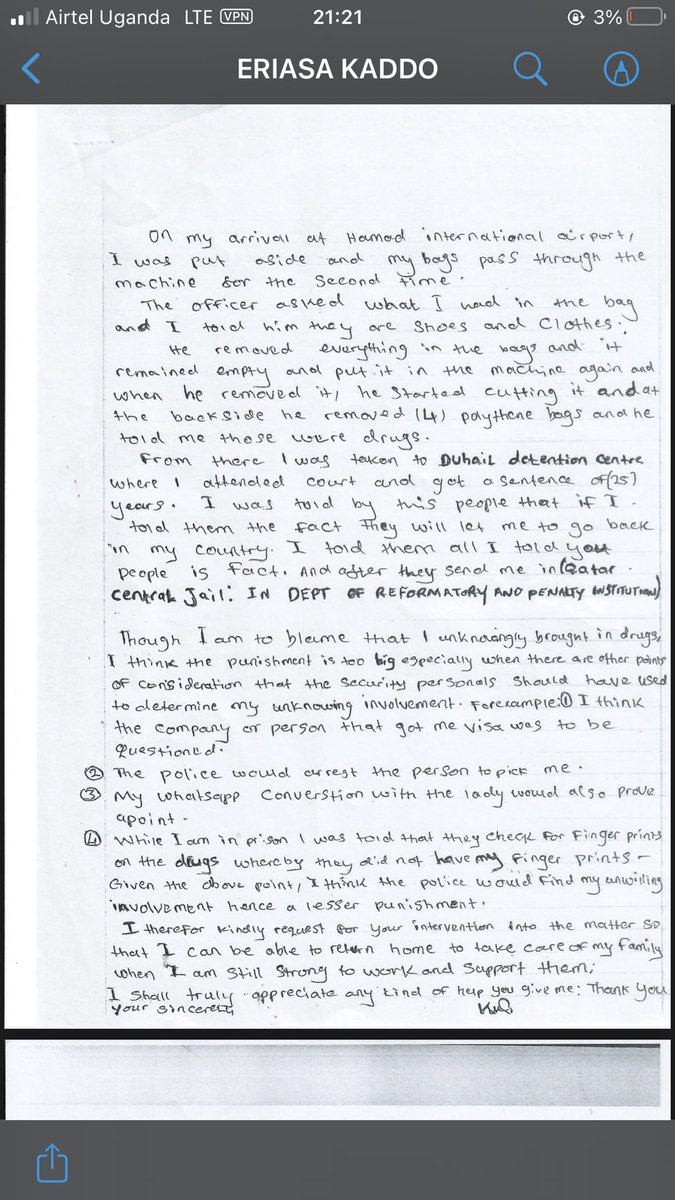 Airtel Uganda LTE VPN 21:21 3%
ERIASA KADDO
On my arrivall at Hamad international airport,
I was put aside and my bags pass through the
machine for the second time.
The officer asked what I had in the bag
and I told him they are shoes and clothes.
He removed everything in the bags and it
remained empty and put it in the machine again and
when he removed it, he started cutting it and at
the backside he removed (4) polythene bags and he
told me those were drugs.
From there I was taken to DUHAIL detention centre
where I attended court and got a sentence of (25)
years. I was told by this people that if I
told them the fact they will let me to go back
in my country. I told them all I told you
people is fact. And after they send me in (Qatar
central Jail: IN DEPT OF REFORMATORY AND PENALTY INSTITUTION)
Though I am to blame that I unknowingly brought in drugs,
I think the punishment is too big especially when there are other points
of consideration that the security personals should have used
to determine my unknowing involvement. Forexample: ① I think
the company or person that got me visa was to be
Questioned.
② The police would arrest the person to pick me.
③ My whatsapp converstion with the lady would also prove
apoint.
④ While I am in prison I was told that they check for Finger prints
on the drugs whereby they did not have my finger prints -
Given the above point, I think the police would find my unwilling
involvement hence a lesser punishment.
I therefor kindly request for your intervention into the matter so
that I can be able to return home to take care of my family
when I am still strong to work and support them;
I shall truly appreciate any kind of help you give me: Thank You
your sincerely